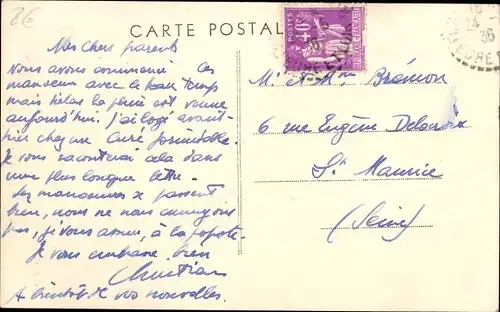 8€
CARTE POSTALE
POSTES
40c
36
Mes chers parents
Nous avons commencé les
manœuv avec le beau temps
mais hélas la pluie est venue
aujourd'hui. J'ai logé avant-
hier chez un Curé formidable.
Je vous raconterai cela dans
une plus longue lettre.
Les manœuvres se passent
bien, nous ne nous ennuyons
pas, je vous assure, à la popote.
Je vous embrasse bien
Christian
A bientôt de vos nouvelles.
Mr & Mme Brémon
6 rue Eugène Delacroix
St Maurice
(Seine)